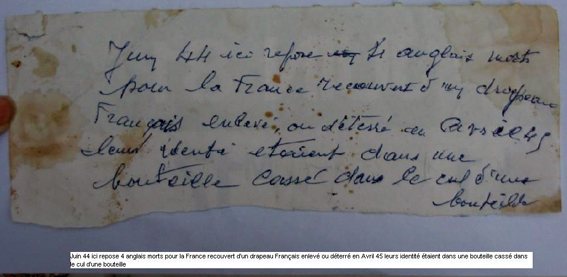 Juin 44 ici repose 4 anglais morts
pour la France recouvert d'un drapeau
Français enlevé ou déterré en Avril 45
leurs identité étaient dans une
bouteille cassé dans le cul d'une
bouteille
Juin 44 ici repose 4 anglais morts pour la France recouvert d'un drapeau Français enlevé ou déterré en Avril 45 leurs identité étaient dans une bouteille cassé dans
le cul d'une bouteille